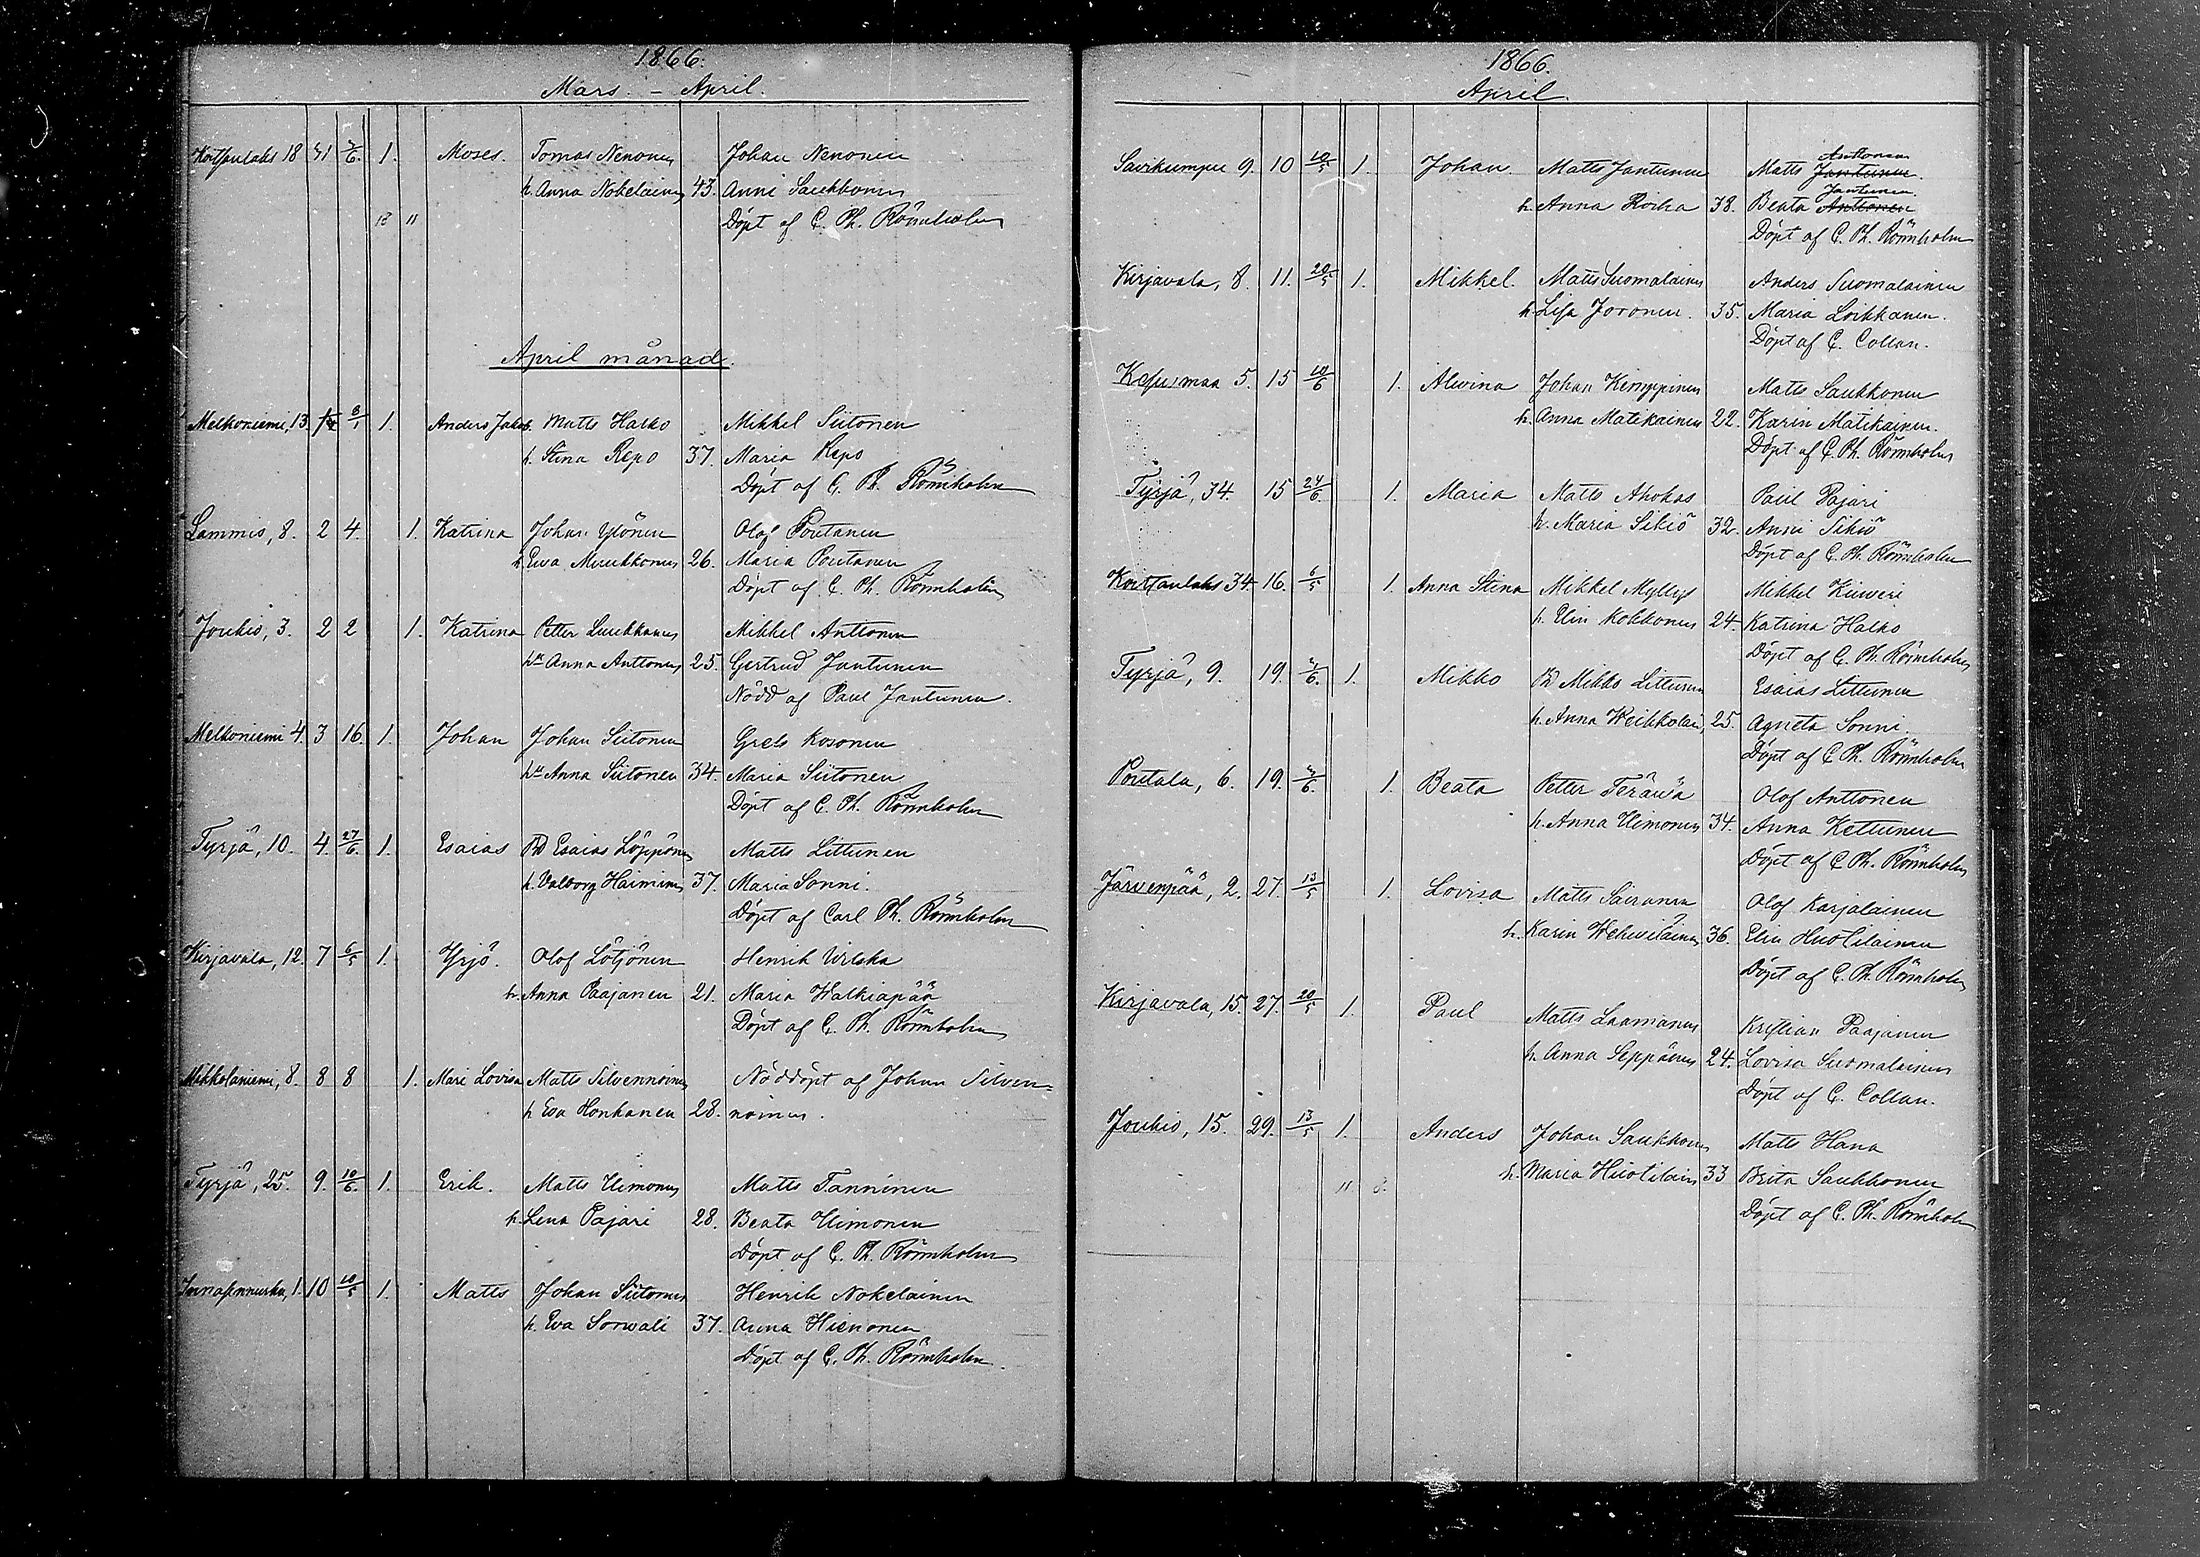 1866.
Mars. - April.
Koitsanlaks 18 31 3/6. 1. Moses. Tomas Nenonen Johan Nenonen
h. Anna Nokelainen 43. Anni Saukkonen
13 11 Döpt af C. Ph. Rönnholm
April månad.
Melkoniemi, 13. 8/1 1. Anders Jakob. Matts Harko Mikkel Siitonen
h. Stina Repo 37. Maria Repo
Döpt af C. Ph. Rönnholm
Lammis, 8. 2 4. 1. Katrina Johan Ylönen Olof Poutanen
h Ewa Muukkonen 26. Maria Poutanen
Döpt af C. Ph. Rönnholm
Joukio, 3. 2 2 1. Katrina Petter Luukkanen Mikkel Anttonen
hu Anna Anttonen 25. Gertrud Jantunen
Nödd af Paul Jantunen.
Melkoniemi 4. 3 16. 1. Johan Johan Siitonen Grels Kosonen
hu Anna Siitonen 34. Maria Siitonen
Döpt af C. Ph. Rönnholm
Tyrjä, 10. 4. 27/6. 1. Esaias Bd Esaias Löppönen Matts Littunen
h. Valborg Haiminen 37. Maria Sonni.
Döpt af Carl Ph. Rönnholm
Kirjavala, 12. 7 6/5 1. Yrjö. Olof Lötjönen Henrik Wilska
h. Anna Paajanen 21. Maria Walkiapää
Döpt af C. Ph. Rönnholm
Mikkolaniemi, 8. 8 8 1. Mari Lovisa Matts Silvennoinen Nöddöpt af Johan Silven=
h Eva Honkanen 28. noinen.
Tyrjä, 25. 9. 10/6. 1. Erik. Matts Uimonen Matts Tanninen
h. Lena Pajari 28. Beata Uimonen
Döpt af C. Ph. Rönnholm
1. 10 20/5 1. Matts Johan Siitonen Henrik Nokelainen
h. Eva Sorwali 37. Anna Hienonen
Döpt af C. Ph. Rönnholm.
1866.
April.
Anttonen
Savikumpu 9. 10 10/5 1. Johan Matts Jantunen Matts Jantunen.
Jantunen
h. Anna Roika 38. Beata Anttonen
Döpt af C. Ph. Rönnholm
Kirjavala, 8. 11. 20/5 1. Mikkel. Matts Suomalainen Anders Suomalainen
h Lisa Joronen. 35. Maria Loikkanen.
Döpt af C. Collan.
Kesusmaa 5. 15 10/6 1. Alwina Johan Kemppinen Matts Saukkonen
h. Anna Matikainen 22. Karin Matikainen.
Döpt af C. Ph. Rönnholm
Tyrjä, 34. 15 24/6. 1. Maria Matts Ahokas Paul Pajari
h. Maria Sikiö 32. Anni Sikiö
Döpt af C. Ph. Rönnholm
Koitsanlaks 34. 16. 6/5 1. Anna Stina Mikkel Myllys Mikkel Kiiweri
h. Elin Kokkonen 24. Katrina Halko
Döpt af C. Ph. Rönnholm
Tyrjä, 9. 19. 3/6. 1. Mikko Bd Mikko Littunen Esaias Littunen
h. Anna Weikkolai, 25. Agneta Sonni
Döpt af C Ph. Rönnholm
Poutala, 6. 19. 3/6. 1. Beata Petter Teräwä Olof Anttonen
h. Anna Uimonen 34. Anna Kettunen
Döpt af C Ph. Rönnholm
Järvenpää, 2. 27. 13/5 1. Lovisa Matts Sairanen Olof Karjalainen
h. Karin Wehwiläinen 36. Elin Huotilainen
Döpt af C. Ph. Rönnholm
Kirjavala, 15. 27. 20/5 1. Paul Matts Laamanen Kristian Paajanen
h. Anna Seppänen 24. Lovisa Suomalainen
Döpt af C. Collan.
Joukio, 15. 29. 13/5 1. Anders Johan Saukkonen Matts Hana
h. Maria Huotilain 33 Brita Saukkonen
11 8. Döpt af C. Ph. Rönnholm